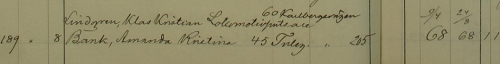 Lindgren, Klas Kristian Lokomotivputsare 60 Karlbergsvägen 9/4 27/8
189 " 8 Bank, Amanda Kristina 45 Integ. " 205 68 68 11